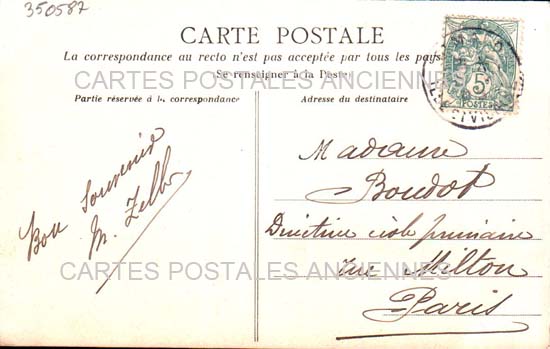 350587
CARTE POSTALE
La correspondance au recto n'est pas acceptée par tous les pays
(Se renseigner à la Poste)
CARTES POSTALES ANCIENNES
Partie réservée à la correspondance
Adresse du destinataire
5c
POSTES
Bon Souvenir
M.
Madame
Boudot
Directrice école primaire
rue Milton
Paris
CARTES POSTALES ANCIENNES